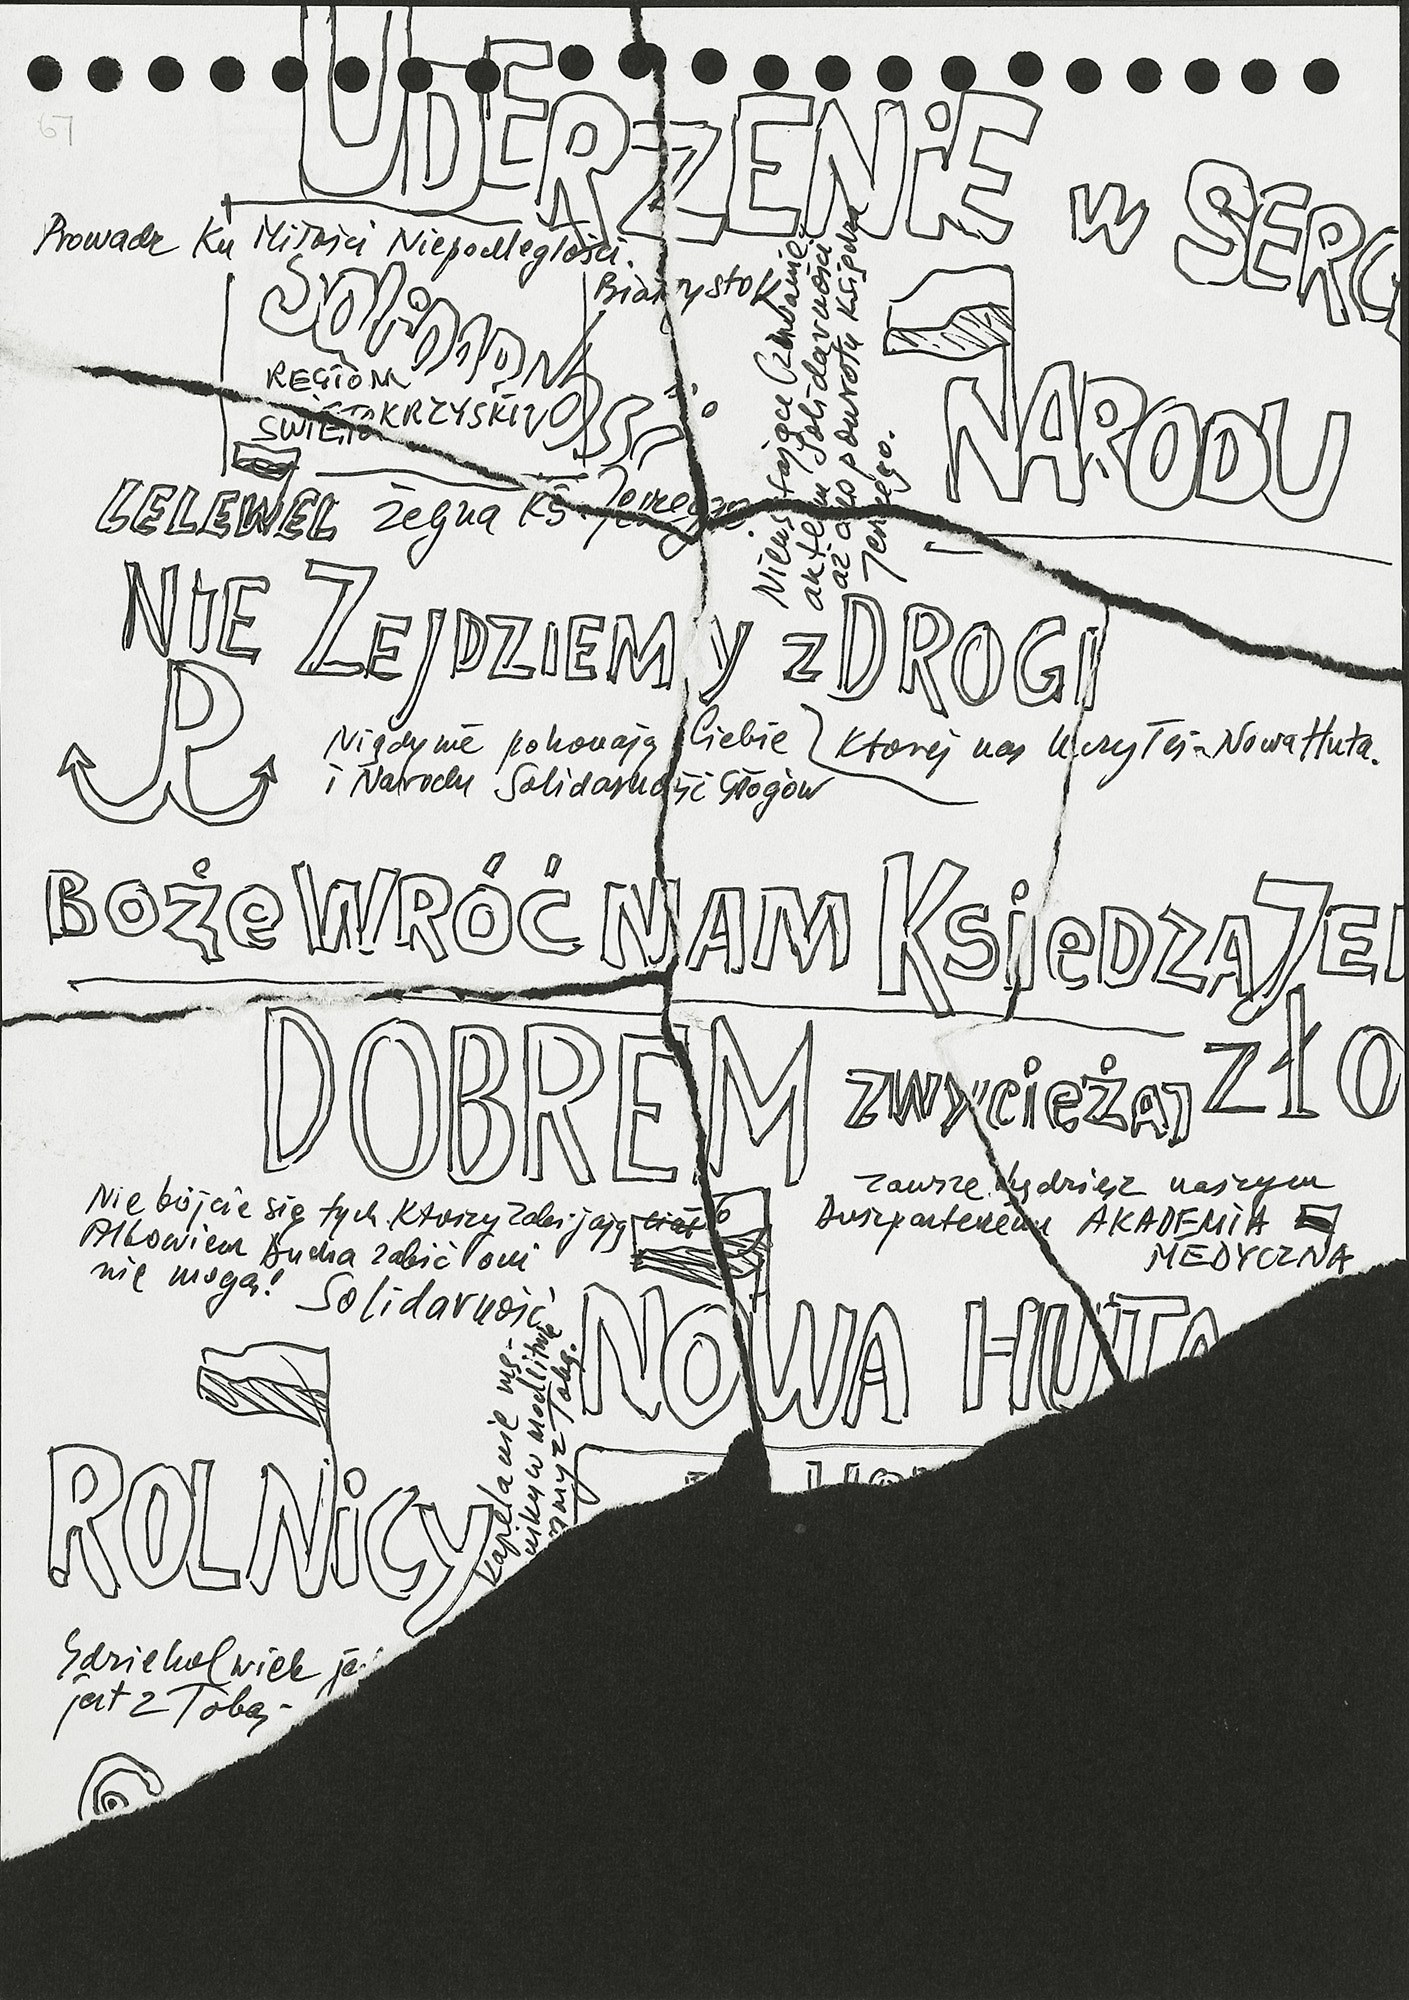 67
UDERZENIE w SERC
NARODU
Prowadź Ku Miłości Niepodległości.
Białystok
SOLIDARNOŚĆ
REGION
ŚWIĘTOKRZYSKI
LELEWEL żegna KS. Jerzego.
Nieustające Czuwanie
aktem Solidarności
aż do powrotu Księdza
Jerzego.
NIE ZEJDZIEMY z DROGI
Nigdy nie pokonają Ciebie
i Narodu Solidarność Głogów
Której nas Uczyłeś - Nowa Huta.
BOŻE WRÓĆ NAM KSiĘDZA JER
DOBREM ZWYCIĘŻAJ ZŁO
Nie bójcie się tych Którzy Zabijają ciało
Albowiem Ducha zabić oni
nie mogą!
Solidarność
zawsze będziesz naszym
Duszpasterzem AKADEMIA
MEDYCZNA
NOWA HUTA
ROLNICY
Kapelanie
w modlitwie
z Tobą.
Gdziekolwiek je
jest z Tobą -